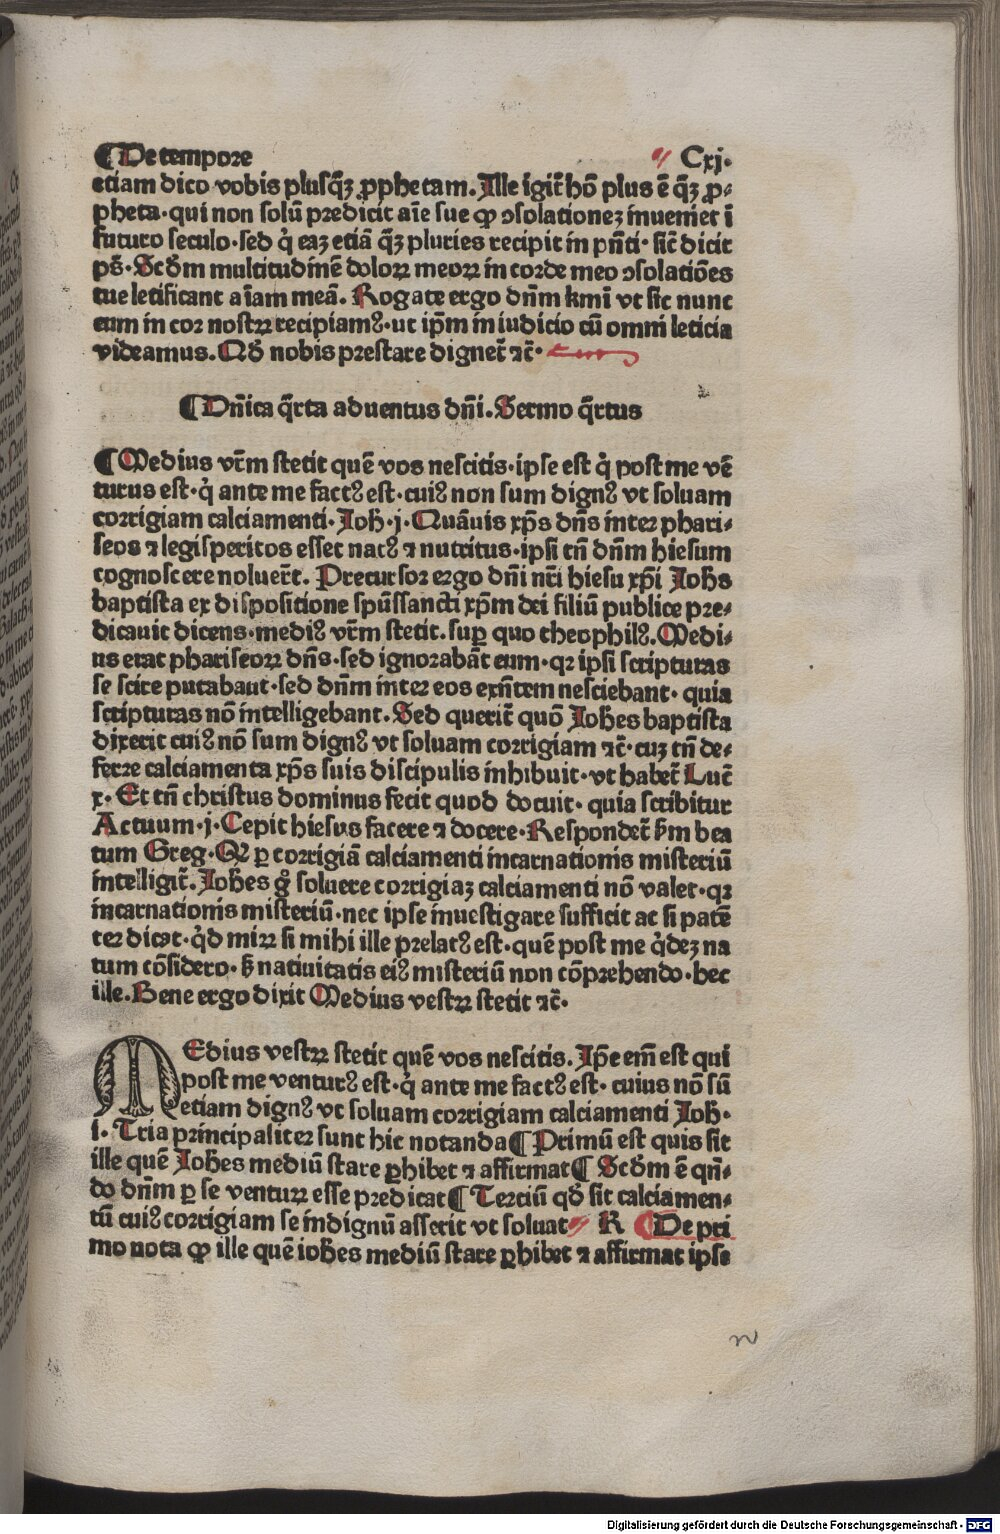 ¶ De tempore Cxj.
etiam dico vobis plusq̃ꝫ ꝓphetam. Ille igit̃ hõ plus ẽ q̃ꝫ ꝓ-
pheta. qui non solũ predicit aĩe sue ꝙ ↄsolationeꝫ inueniet ĩ
futuro seculo. sed q̇ eaꝫ etiã q̃ꝫ pluries recipit in pñti. sic̃ dicit
ps̃. Scd̃m multitudinẽ doloꝝ meoꝝ in corde meo ↄsolatiões
tue letificant aĩam meã. Rogate ergo dñm kmĩ vt sic nunc
eum in cor nostꝝ recipiamꝰ. ut ip̃m in iudicio cũ omni leticia
videamus. Qd̃ nobis prestare dignet̃ ⁊c̃.
¶ Dñica q̃rta aduentus dñi. Sermo q̃rtus
¶ Medius vr̃m stetit quẽ vos nescitis. ipse est q̇ post me vẽ
turus est. q̇ ante me factꝰ est. cuiꝰ non sum dignꝰ vt soluam
corrigiam calciamenti. Joh̃. j. Quãuis xp̃s dñs inter phari-
seos ⁊ legisperitos esset natꝰ ⁊ nutritus. ipsi tñ dñm hiesum
cognoscere noluer̃t. Precursor ergo dñi nr̃i hiesu xp̃i Joh̃s
baptista ex dispositione spũssancti xp̃m dei filiũ publice pre-
dicauit dicens. mediꝰ vr̃m stetit. suꝑ quo theophilꝰ. Medi-
us erat phariseoꝝ dñs. sed ignorabãt eum. qꝛ ipsi scripturas
se scire putabant. sed dñm inter eos exñtem nesciebant. quia
scripturas nõ intelligebant. Sed querit̃ quõ Joh̃es baptista
dixerit cuiꝰ nõ sum dignꝰ vt soluam corrigiam ⁊c̃. cuꝫ tñ de-
ferre calciamenta xp̃s suis discipulis inhibuit. vt habet̃ Luc̃
x. Et tñ christus dominus fecit quod docuit. quia scribitur
Actuum. j. Cepit hiesus facere ⁊ docere. Respondet̃ ẜm bea
tum Greg. Qꝛ ꝑ corrigiã calciamenti incarnationis misteriũ
intelligit̃. Joh̃es gͦ soluere corrigiaꝫ calciamenti nõ valet. qꝛ
incarnationis misteriũ. nec ipse inuestigare sufficit ac si patẽ
ter dicat. q̇d miꝝ si mihi ille prelatꝰ est. quẽ post me q̇deꝫ na
tum cõsidero. ẜ natiuitatis eiꝰ misteriũ non cõprehendo. hec
ille. Bene ergo dixit Medius vestꝝ stetit ⁊c̃.
MEdius vestꝝ stetit quẽ vos nescitis. Ip̃e em̃ est qui
post me venturꝰ est. q̇ ante me factꝰ est. cuius nõ sũ
etiam dignꝰ vt soluam corrigiam calciamenti Joh̃.
i. Tria principaliter sunt hic notanda ¶ Primũ est quis sit
ille quẽ Joh̃es mediũ stare ꝑhibet ⁊ affirmat ¶ Scd̃m ẽ qñ-
do dñm ꝑ se ventuꝝ esse predicat ¶ Terciũ qd̃ sit calciamen-
tũ cuiꝰ corrigiam se indignũ asserit vt soluat R ¶ De pri
mo nota ꝙ ille quẽ ioh̃es mediũ stare ꝑhibet ⁊ affirmat ipse
Digitalisierung gefördert durch die Deutsche Forschungsgemeinschaft - DFG